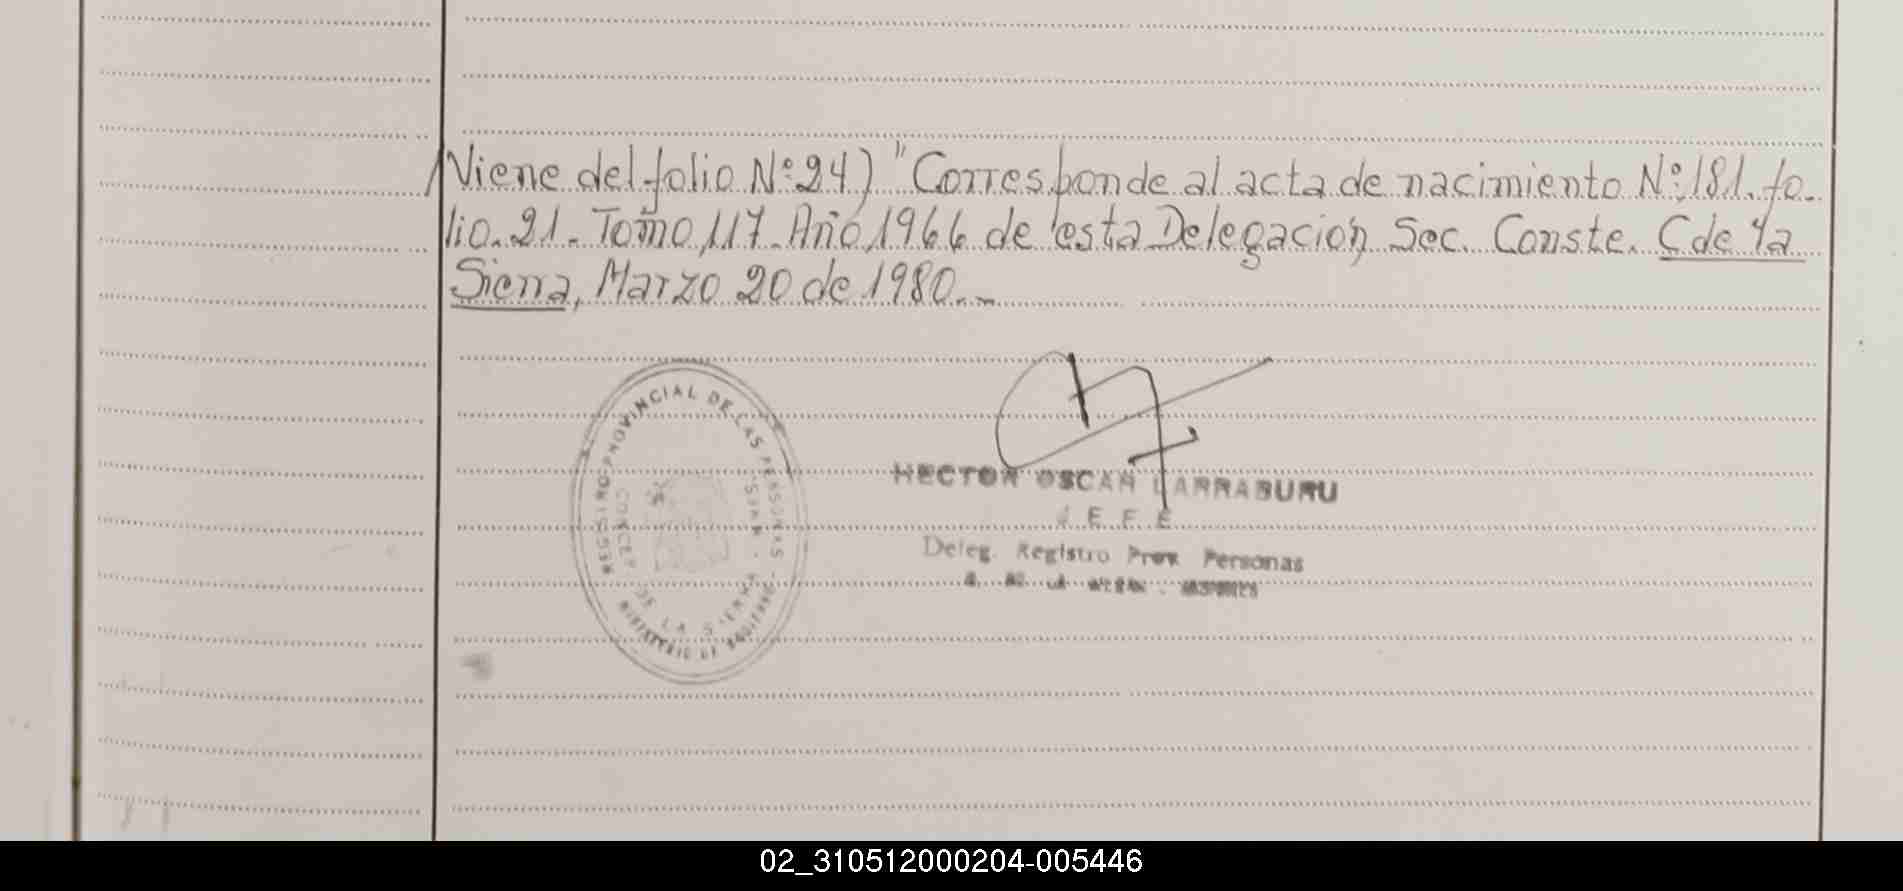 (Viene del folio Nº 24) "Corresponde al acta de nacimiento Nº 181. fo-
lio. 21. Tomo 117. Año 1966 de esta Delegación Sec. Conste. C de la
Sierra, Marzo 20 de 1980..-
REGISTRO PROVINCIAL DE LAS PERSONAS
CONCEP DE LA SIERRA - MNES.
MINISTERIO DE
HECTOR OSCAR LARRABURU
JEFE
Deleg. Registro Prov. Personas
02_310512000204-005446